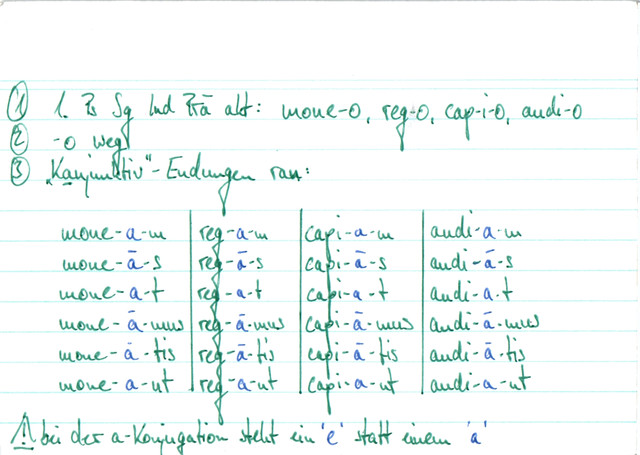 ① 1. Ps Sg Ind Prä akt: mone-o, reg-o, cap-i-o, audi-o
② -o weg
③ „Kanjunktiv"-Endungen ran:
mone-a-m | reg-a-m | capi-a-m | audi-a-m
mone-ā-s | reg-ā-s | capi-ā-s | audi-ā-s
mone-a-t | reg-a-t | capi-a-t | audi-a-t
mone-ā-mus | reg-ā-mus | capi-ā-mus | audi-ā-mus
mone-ā-tis | reg-ā-tis | capi-ā-tis | audi-ā-tis
mone-a-nt | reg-a-nt | capi-a-nt | audi-a-nt
⚠ bei der a-Konjugation steht ein 'e' statt einem 'a'